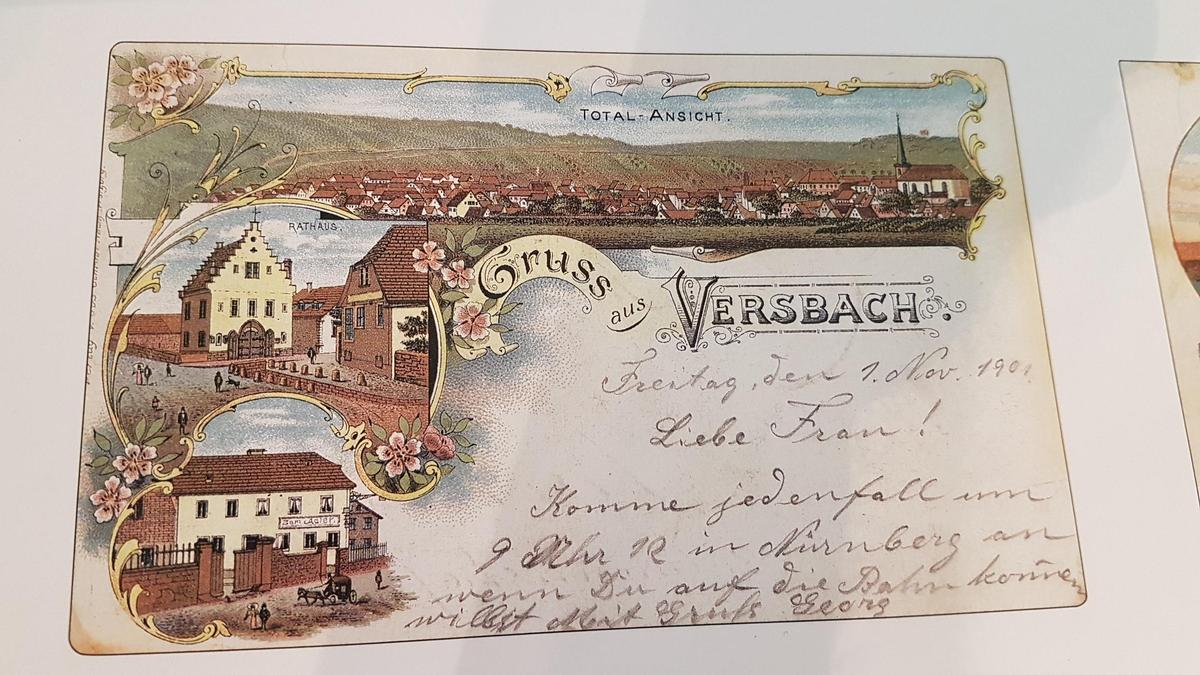 TOTAL-ANSICHT.
RATHAUS.
Gruss
aus
VERSBACH.
Freitag, den 1. Nov. 1901
Liebe Frau!
Komme jedenfall um
9 Uhr 12 in Nürnberg an
wenn Du auf die Bahn kommen
willst Mit Gruß Georg
Zum Adler